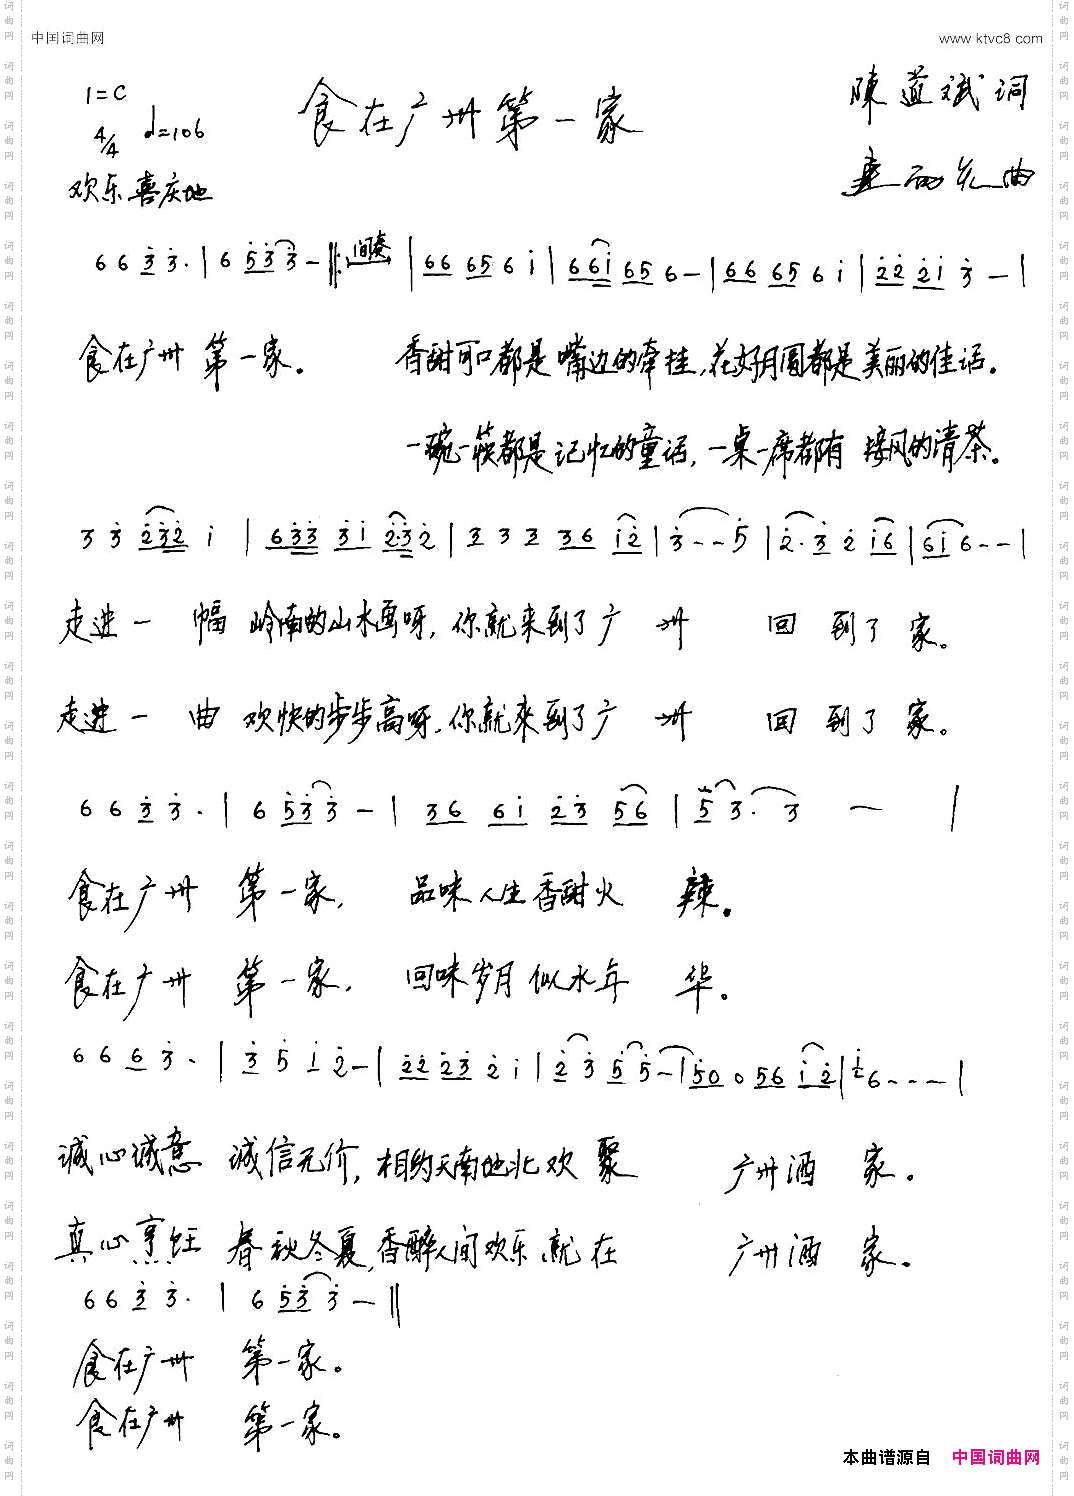 中国词曲网 www.ktvc8.com
1=C 食在广州第一家 陳道斌词
4/4 d=106
欢乐喜庆地 曲
6 6 3 3. | 6 5 3 3 - ‖: 间奏 | 66 65 6 i | 66i 65 6 - | 66 65 6 i | 22 2i 3 - |
食在广州 第一家。 香甜可口都是嘴边的牵挂,花好月圆都是美丽的佳话。
一碗一筷都是记忆的童话,一桌一席都有接风的清茶。
3 3 232 i | 633 3i 232 | 3 3 3 36 i2 | 3 - - 5 | 2. 3 2 i6 | 6i 6 - - |
走进一 幅 岭南的山水画呀,你就来到了广 州 回 到了 家。
走进一 曲 欢快的步步高呀,你就來到了广 州 回 到了 家。
6 6 3 3. | 6 5 3 3 - | 36 6i 23 56 | 5 3. 3 - |
食在广州 第一家, 品味人生香甜火 辣。
食在广州 第一家, 回味岁月似水年 华。
6 6 6 3. | 3 5 i 2 - | 22 23 2 i | 2 3 5 5 - | 50 0 56 i2 | 2 6 - - - |
诚心诚意 诚信无价,相约天南地北欢 聚 广州酒 家。
真心烹饪 春秋冬夏,香醉人间欢乐就在 广州酒 家。
6 6 3 3. | 6 5 3 3 - ‖
食在广州 第一家。
食在广州 第一家。
本曲谱源自 中国词曲网